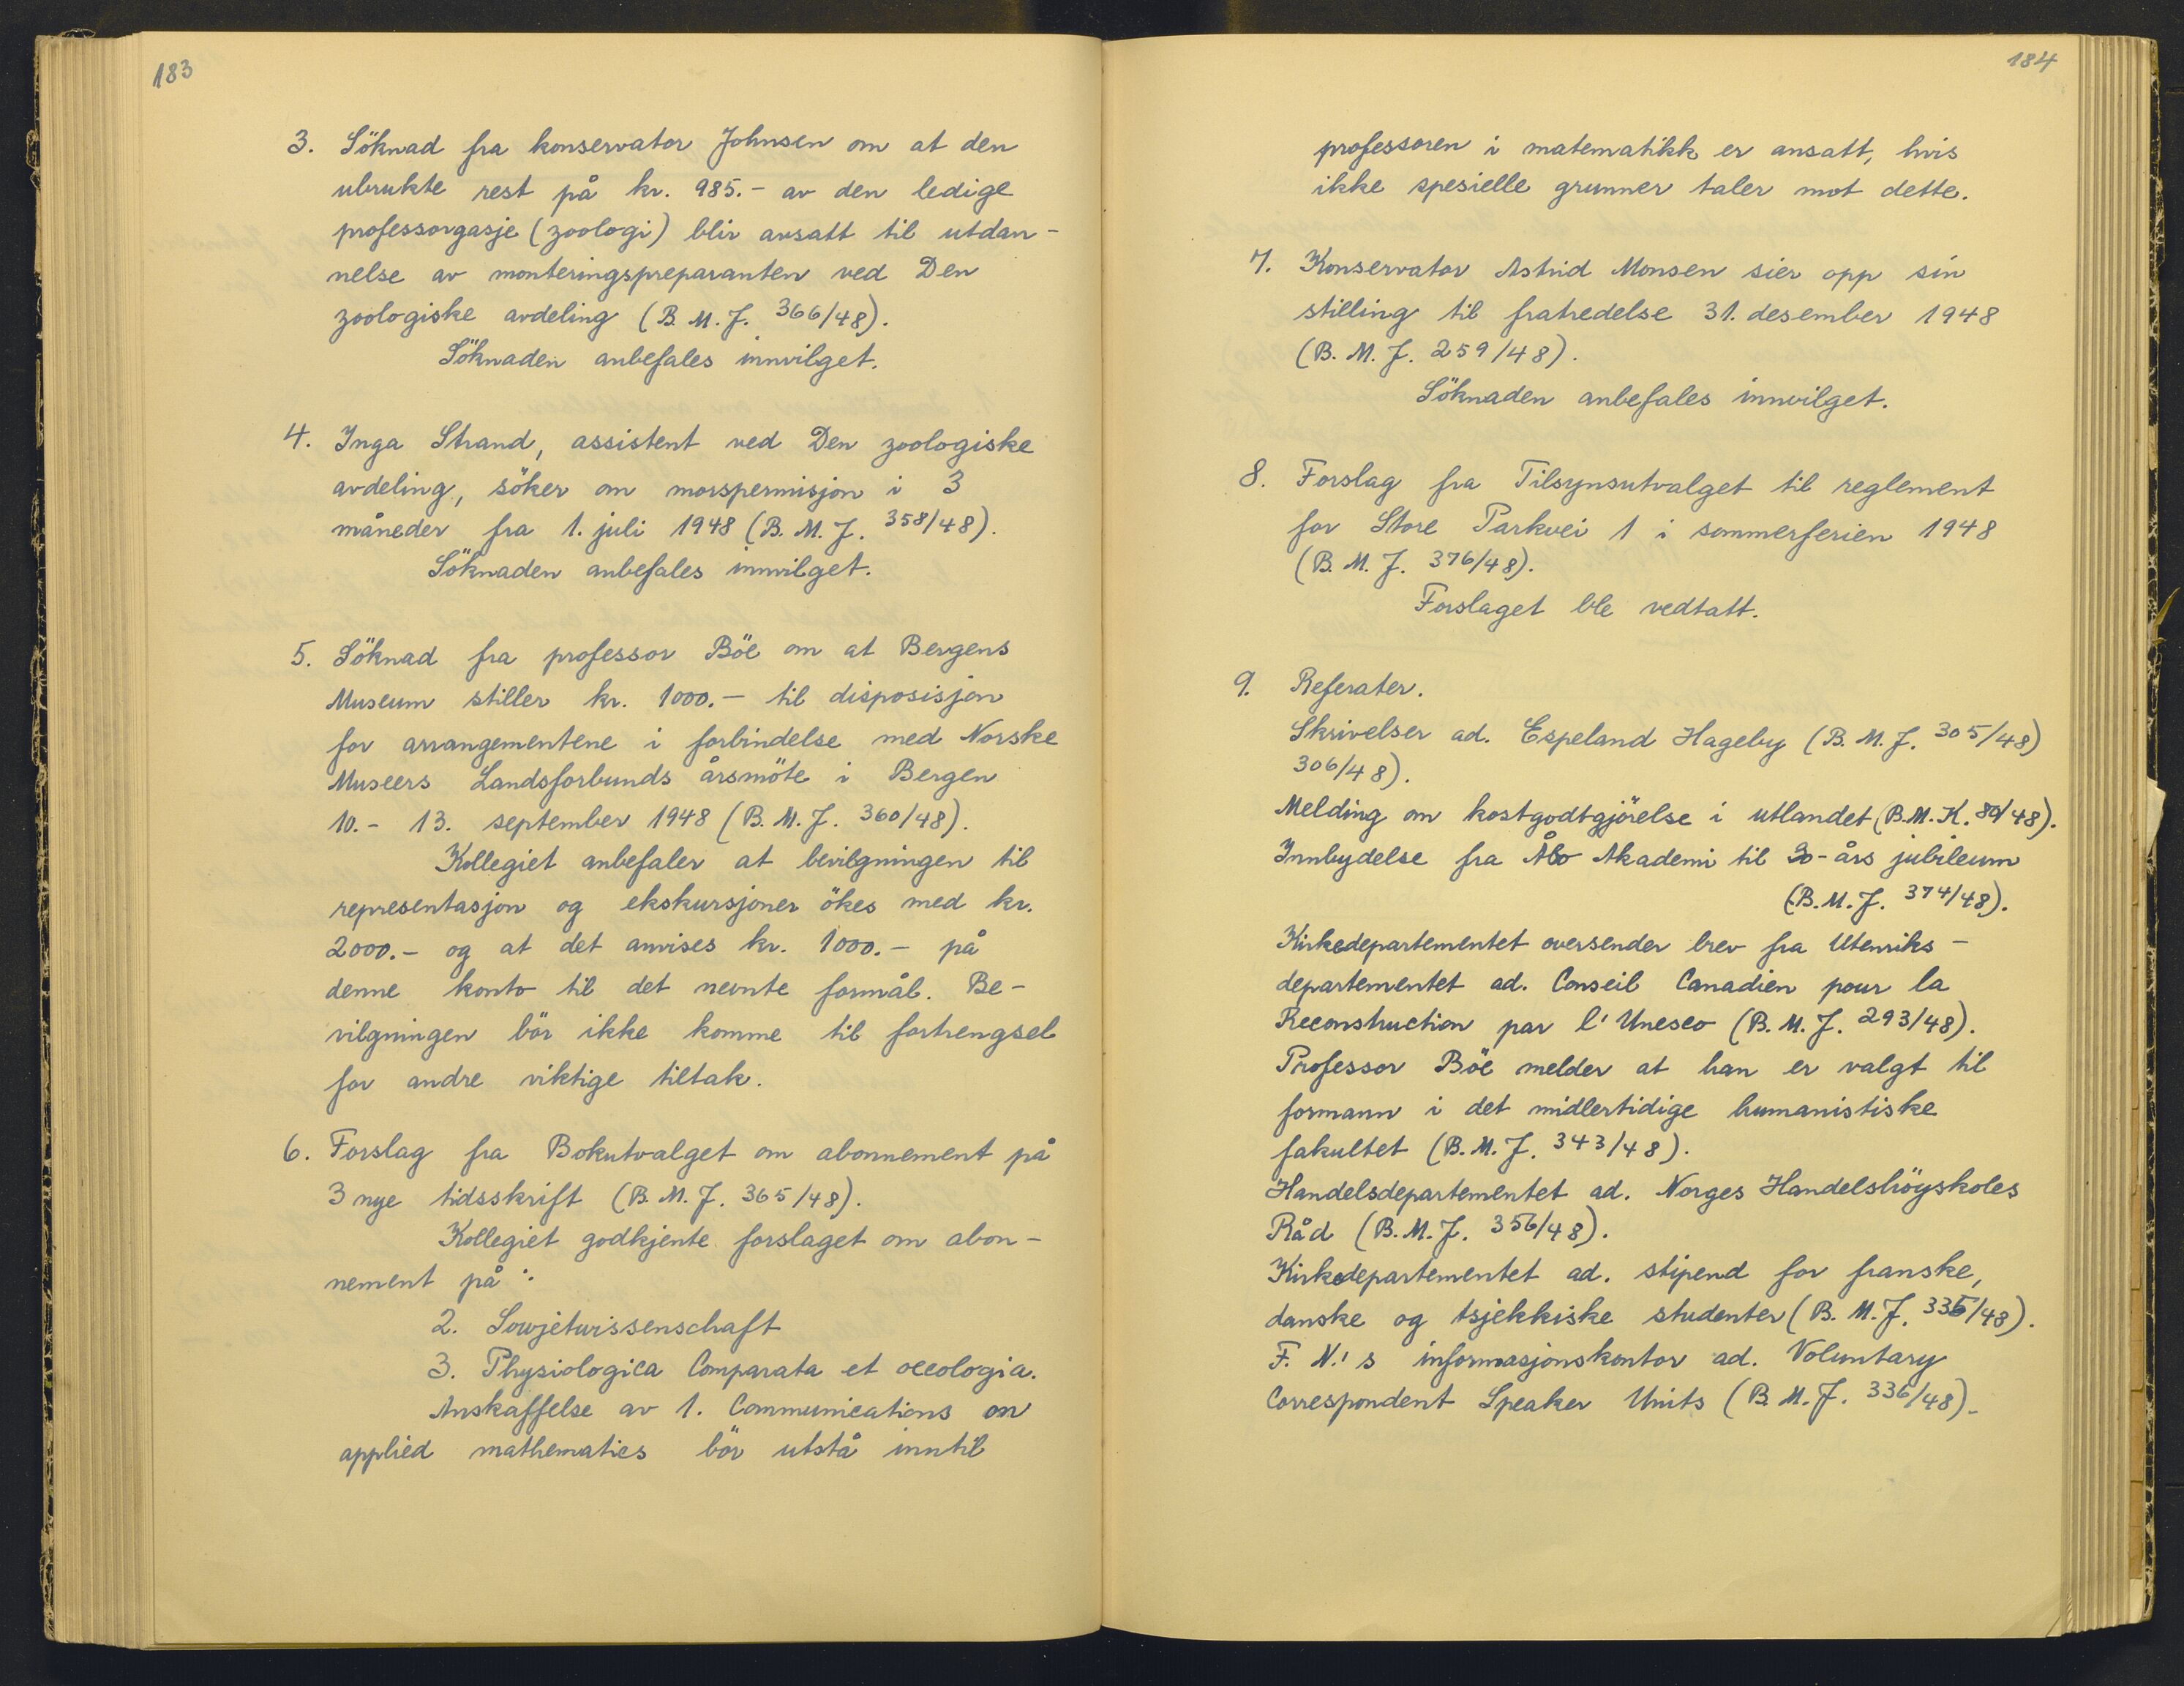 183
3. Söknad fra konservator Johnsen om at den
ubrukte rest på kr. 985.- av den ledige
professorgasje (zoologi) blir avsatt til utdan-
nelse av monteringspreparanten ved Den
zoologiske avdeling (B. M. J. 366/48).
Söknaden anbefales innvilget.
4. Inga Strand, assistent ved Den zoologiske
avdeling, söker om morspermisjon i 3
måneder fra 1. juli 1948 (B. M. J. 358/48).
Söknaden anbefales innvilget.
5. Söknad fra professor Böe om at Bergens
Museum stiller kr. 1000.- til disposisjon
for arrangementene i forbindelse med Norske
Museers Landsforbunds årsmöte i Bergen
10.- 13. september 1948 (B. M. J. 360/48).
Kollegiet anbefaler at bevilgningen til
representasjon og ekskursjoner ökes med kr.
2000.- og at det anvises kr. 1000.- på
denne konto til det nevnte formål. Be-
vilgningen bör ikke komme til fortrengsel
for andre viktige tiltak.
6. Forslag fra Bokutvalget om abonnement på
3 nye tidsskrift (B. M. J. 365/48).
Kollegiet godkjente forslaget om abon-
nement på :
2. Sowjetwissenschaft
3. Physiologica Comparata et oecologia.
Anskaffelse av 1. Communications on
applied mathematics bör utstå inntil
184
professoren i matematikk er ansatt, hvis
ikke spesielle grunner taler mot dette.
7. Konservator Astrid Monsen sier opp sin
stilling til fratredelse 31. desember 1948
(B. M. J. 259/48).
Söknaden anbefales innvilget.
8. Forslag fra Tilsynsutvalget til reglement
for Store Parkvei 1 i sommerferien 1948
(B. M. J. 376/48).
Forslaget ble vedtatt.
9. Referater.
Skrivelser ad. Espeland Hageby (B. M. J. 305/48)
306/48).
Melding om kostgodtgjörelse i utlandet (B. M. K. 80/48).
Innbydelse fra Åbo Akademi til 30-års jubileum
(B. M. J. 374/48).
Kirkedepartementet oversender brev fra Utenriks-
departementet ad. Conseil Canadien pour la
Reconstruction par l'Unesco (B. M. J. 293/48).
Professor Böe melder at han er valgt til
formann i det midlertidige humanistiske
fakultet (B. M. J. 343/48).
Handelsdepartementet ad. Norges Handelshöyskoles
Råd (B. M. J. 356/48).
Kirkedepartementet ad. stipend for franske,
danske og tsjekkiske studenter (B. M. J. 335/48).
F. N.'s informasjonskontor ad. Voluntary
Correspondent Speaker Units (B. M. J. 336/48).